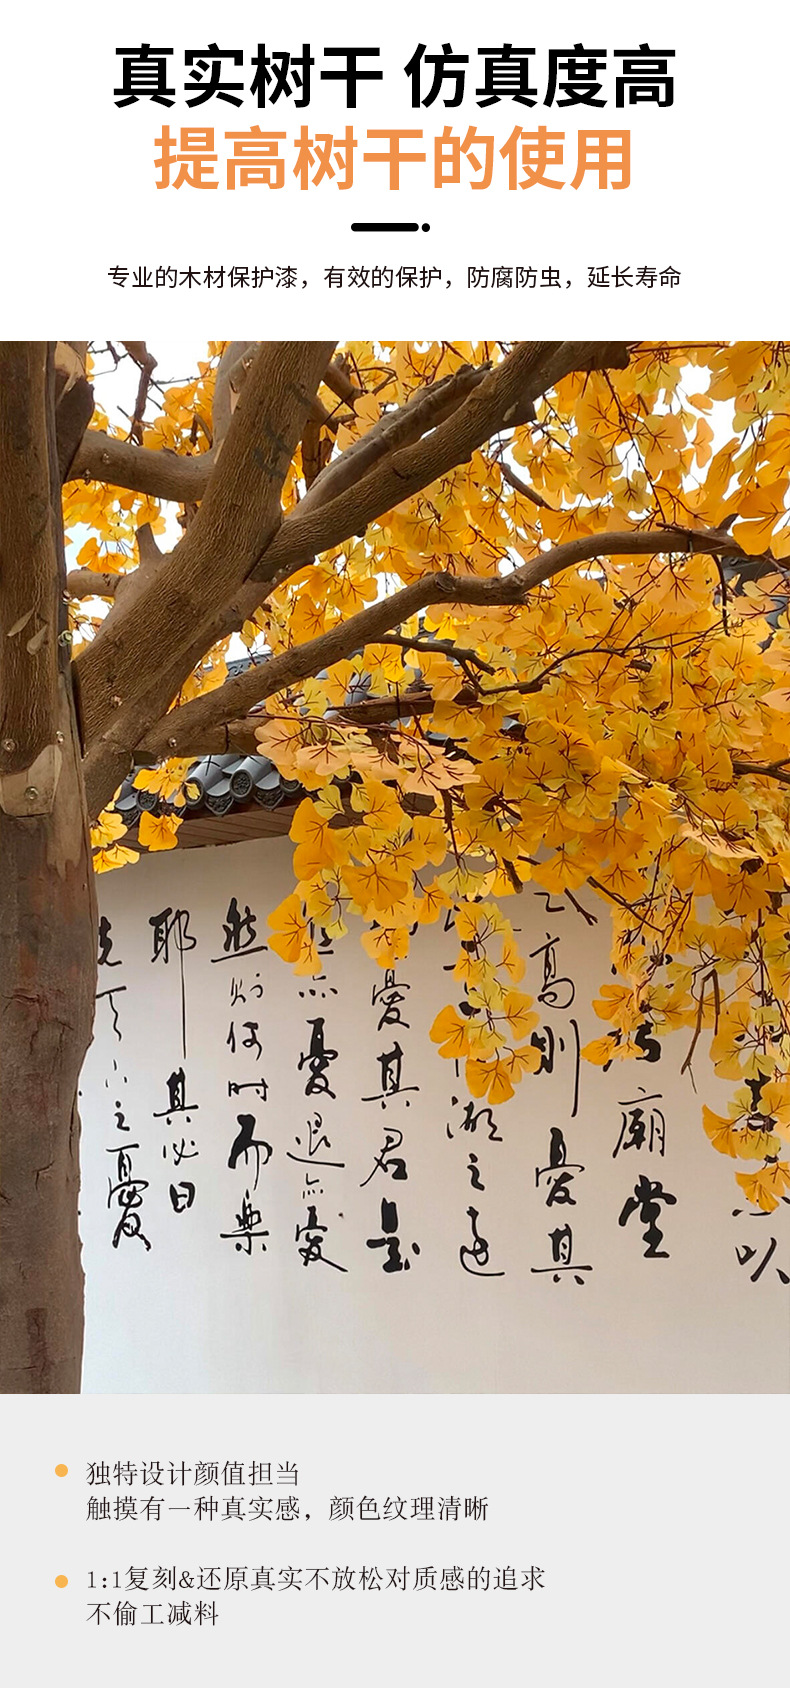 真实树干 仿真度高
提高树干的使用
专业的木材保护漆，有效的保护，防腐防虫，延长寿命
以
廟堂
之高則憂其
湖之遠
憂其君是
亦憂退亦憂
然則何時而樂
耶其必曰
先天下之憂
独特设计颜值担当
触摸有一种真实感，颜色纹理清晰
1:1复刻&还原真实不放松对质感的追求
不偷工减料